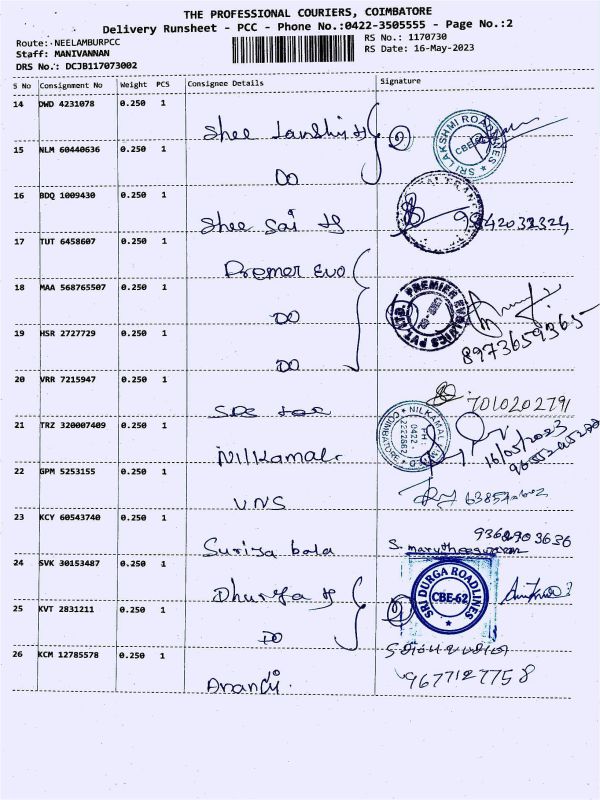 THE PROFESSIONAL COURIERS, COIMBATORE
Delivery Runsheet - PCC - Phone No.:0422-3505555 - Page No.:2
Route: NEELAMBURPCC
Staff: MANIVANNAN
DRS No.: DCJB117073002
RS No.: 1170730
RS Date: 16-May-2023
S No Consignment No Weight PCS Consignee Details Signature
14 DWD 4231078 0.250 1
SRI LAKSHMI ROADLINES
CBE
15 NLM 60440636 0.250 1
DO
16 BDQ 1009430 0.250 1
Shee Sai
17 TUT 6458607 0.250 1
Premer Evo
18 MAA 568765507 0.250 1
DO
PREMIER EVOLVICS PVT. LTD
8973659365
19 HSR 2727729 0.250 1
DO
20 VRR 7215947 0.250 1
7010202791
21 TRZ 320007409 0.250 1
Nilkamal
NILKAMAL
COIMBATORE
PH :
0422-
16/05/2023
22 GPM 5253155 0.250 1
VNS
23 KCY 60543740 0.250 1
Suriya bala
9362903636
24 SVK 30153487 0.250 1
Dhurga
SRI DURGA ROADLINES
CBE-62
25 KVT 2831211 0.250 1
DO
26 KCM 12785578 0.250 1
9677127758